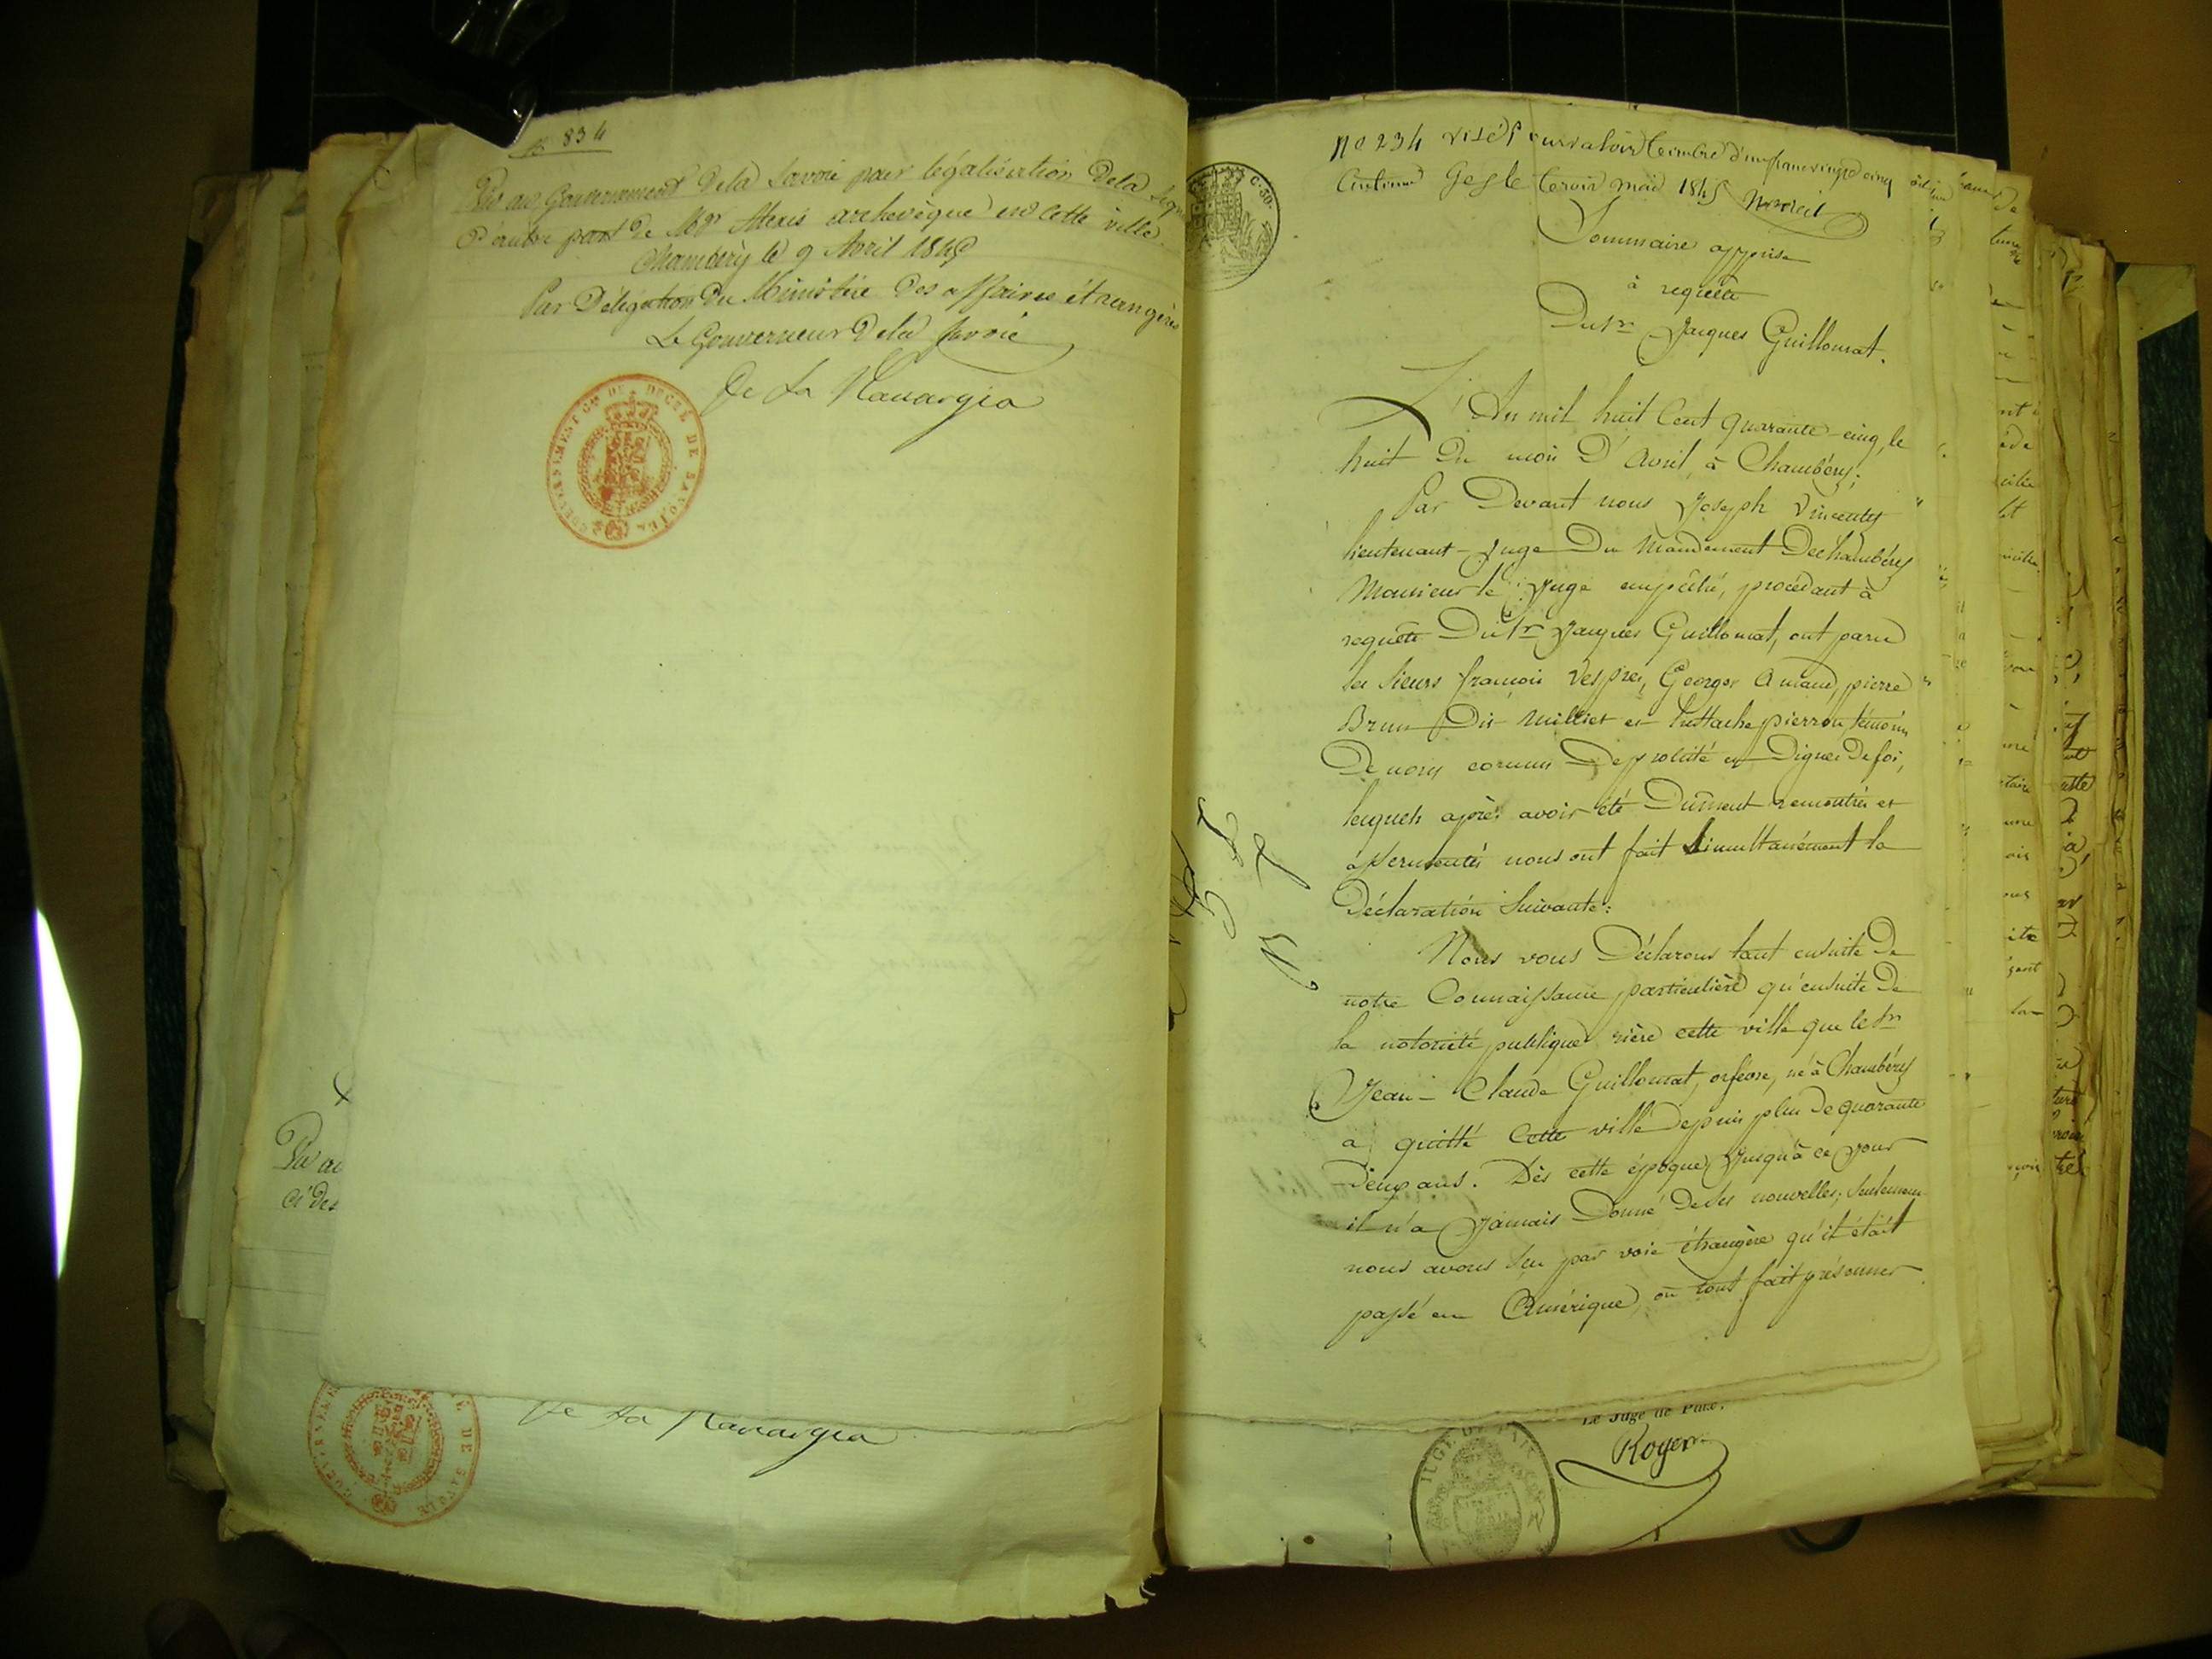 N 834
Vu au Gouvernement de la Savoie pour légalisation de la sign
d'autre part de Mgr Alexis archevêque en cette ville.
Chambéry le 9 Avril 1845
Par Délégation du Ministère des affaires étrangères
Le Gouverneur de la Savoie
De La Planargia
GOUVERNEMENT GÉN. DU DUCHÉ DE SAVOIE
Vu au
ci des
De La Planargia
DE SAVOIE
C. 50.
No 234 visé pour valoir timbre d'un franc vingt cinq
Centimes Gex le trois mai 1845
Sommaire apprise
à requête
Du Sr Jacques Guilloumat.
L'An mil huit cent quarante-cinq, le
huit du mois d'Avril, à Chambéry;
Par Devant nous Joseph Vincenty
lieutenant-juge Du Mandement De Chambéry
Monsieur le juge empêché, procédant à
requête Du Sr Jacques Guilloumat, ont paru
les Sieurs françois Vespres, Georges Amaud, pierre
Brun Dit Milliet et Eustache pierron, témoins
De nous connus De probité et Dignes De foi,
lesquels après avoir été Dûment remontrés et
assermentés nous ont fait Simultanément la
Déclaration Suivante:
Nous vous Déclarons tant ensuite De
notre Connaissance particulière qu'ensuite De
la notoriété publique rière cette ville que le Sr
Jean-Claude Guilloumat, orfèvre, né à Chambéry
a quitté cette ville depuis plus de quarante
Deux ans. Dès cette époque jusqu'à ce jour
il n'a jamais Donné De Ses nouvelles; Seulement
nous avons Su par voie étrangère qu'il était
passé en Amérique, où tout fait présumer
Le Juge de Paix,
Royer
JUGE DE PAIX